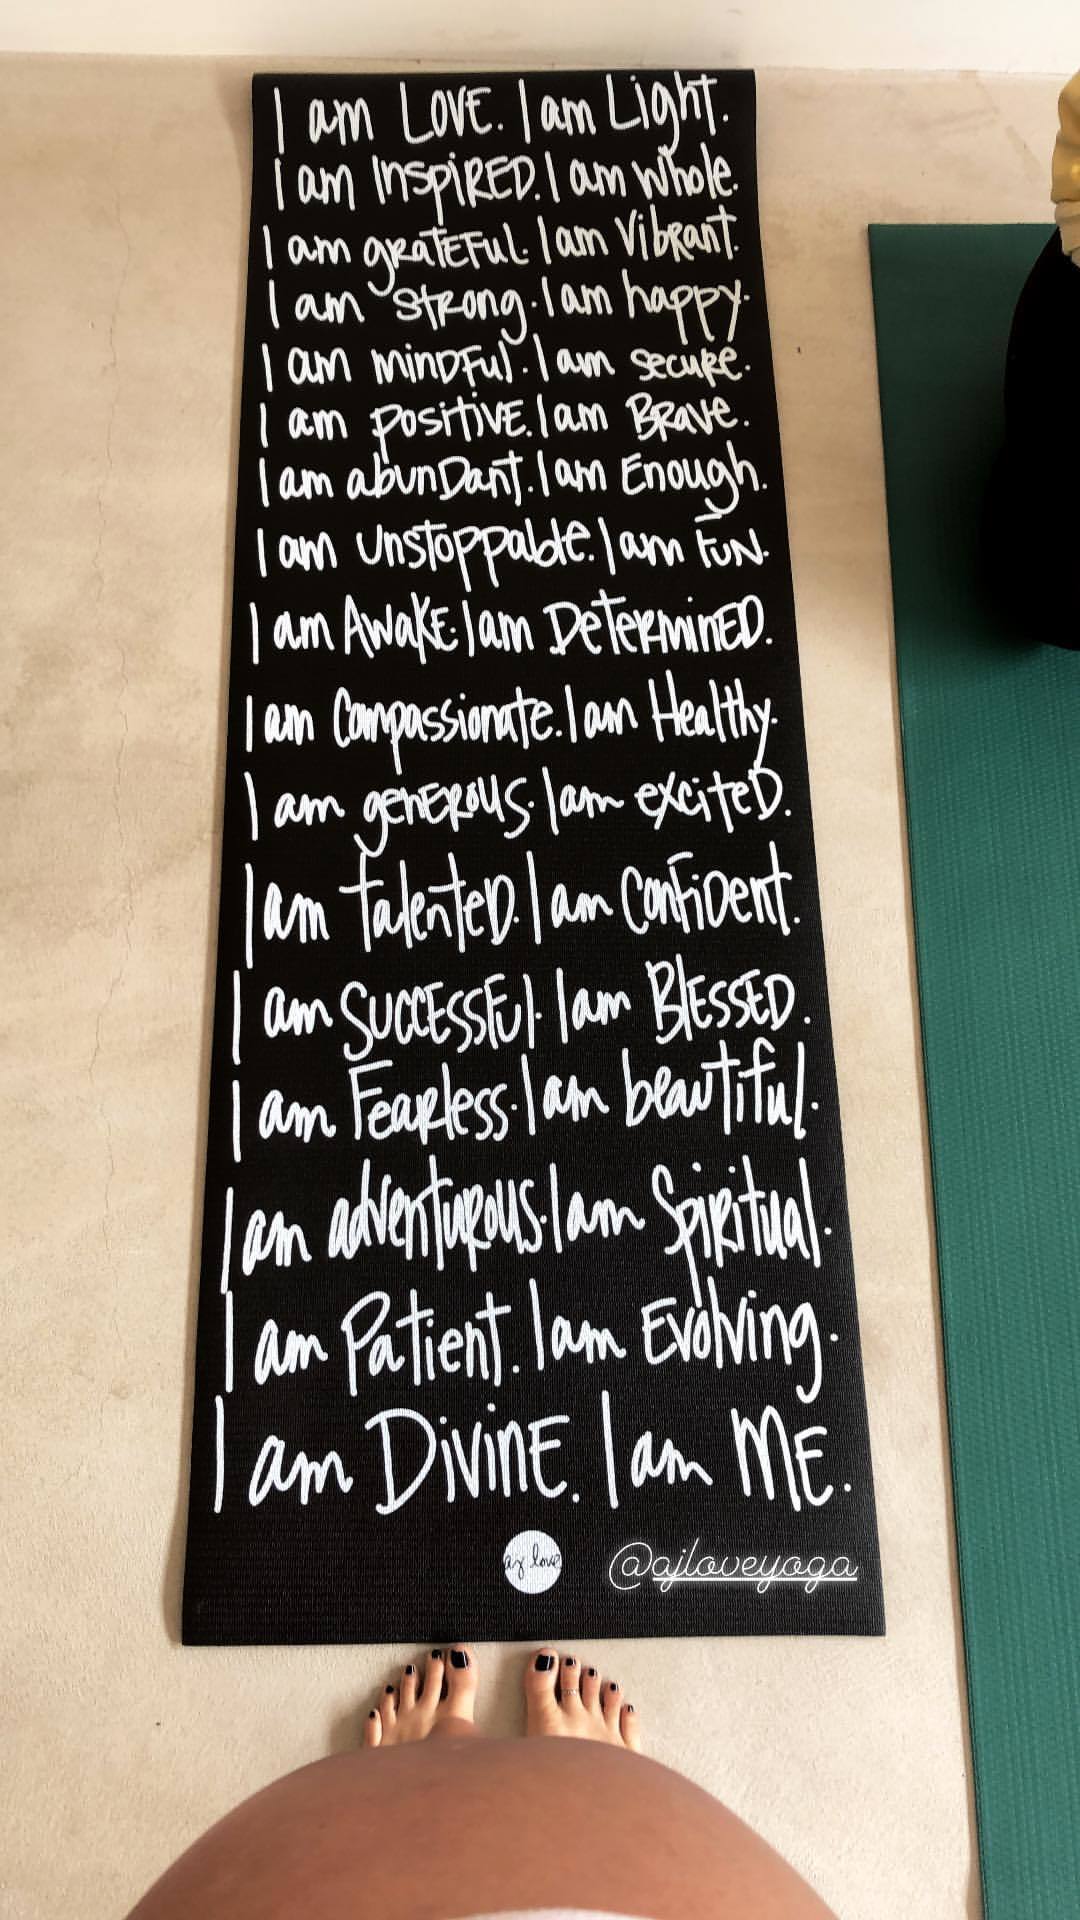 I am LOVE. I am Light.
I am INSPIRED. I am whole.
I am gRATEFUL. I am VibRant.
I am STRong. I am happy.
I am minDFul. I am secuRe.
I am positiVE. I am BRave.
I am abunDant. I am Enough.
I am unstoppable. I am FUN.
I am AwaKE. I am DeteRminED.
I am Compassionate. I am Healthy.
I am genEROUS. I am exciteD.
I am talenteD. I am ConFiDent.
I am SUCCESSFul. I am BlESSED.
I am FeaRless. I am beautiful.
I am adventuROUS. I am SpiRitual.
I am Patient. I am Evolving.
I am DivinE. I am ME.
aj love
@ajloveyoga